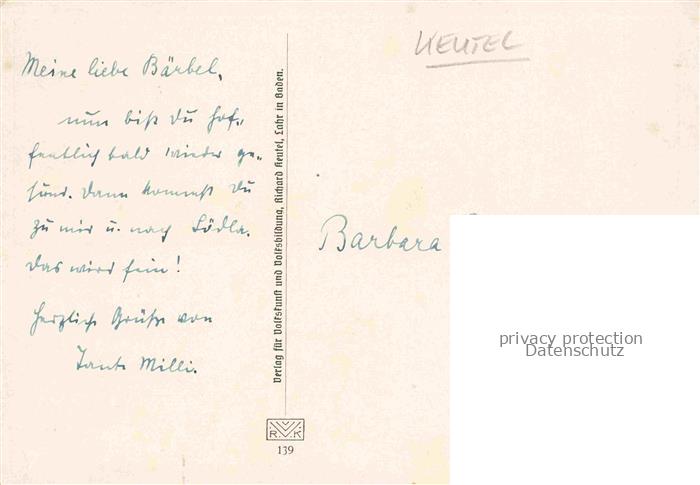 Meine liebe Bärbel,
nun bist du hof-
fentlich bald wieder ge-
sund. Dann kommst Du
zu mir u. nach Lödla.
Das wird fein!
Herzliche Grüße von
Tante Milli.
Verlag für Volkskunst und Volksbildung, Richard Keutel, Lahr in Baden.
RVK
139
KEUTEL
Barbara
privacy protection
Datenschutz